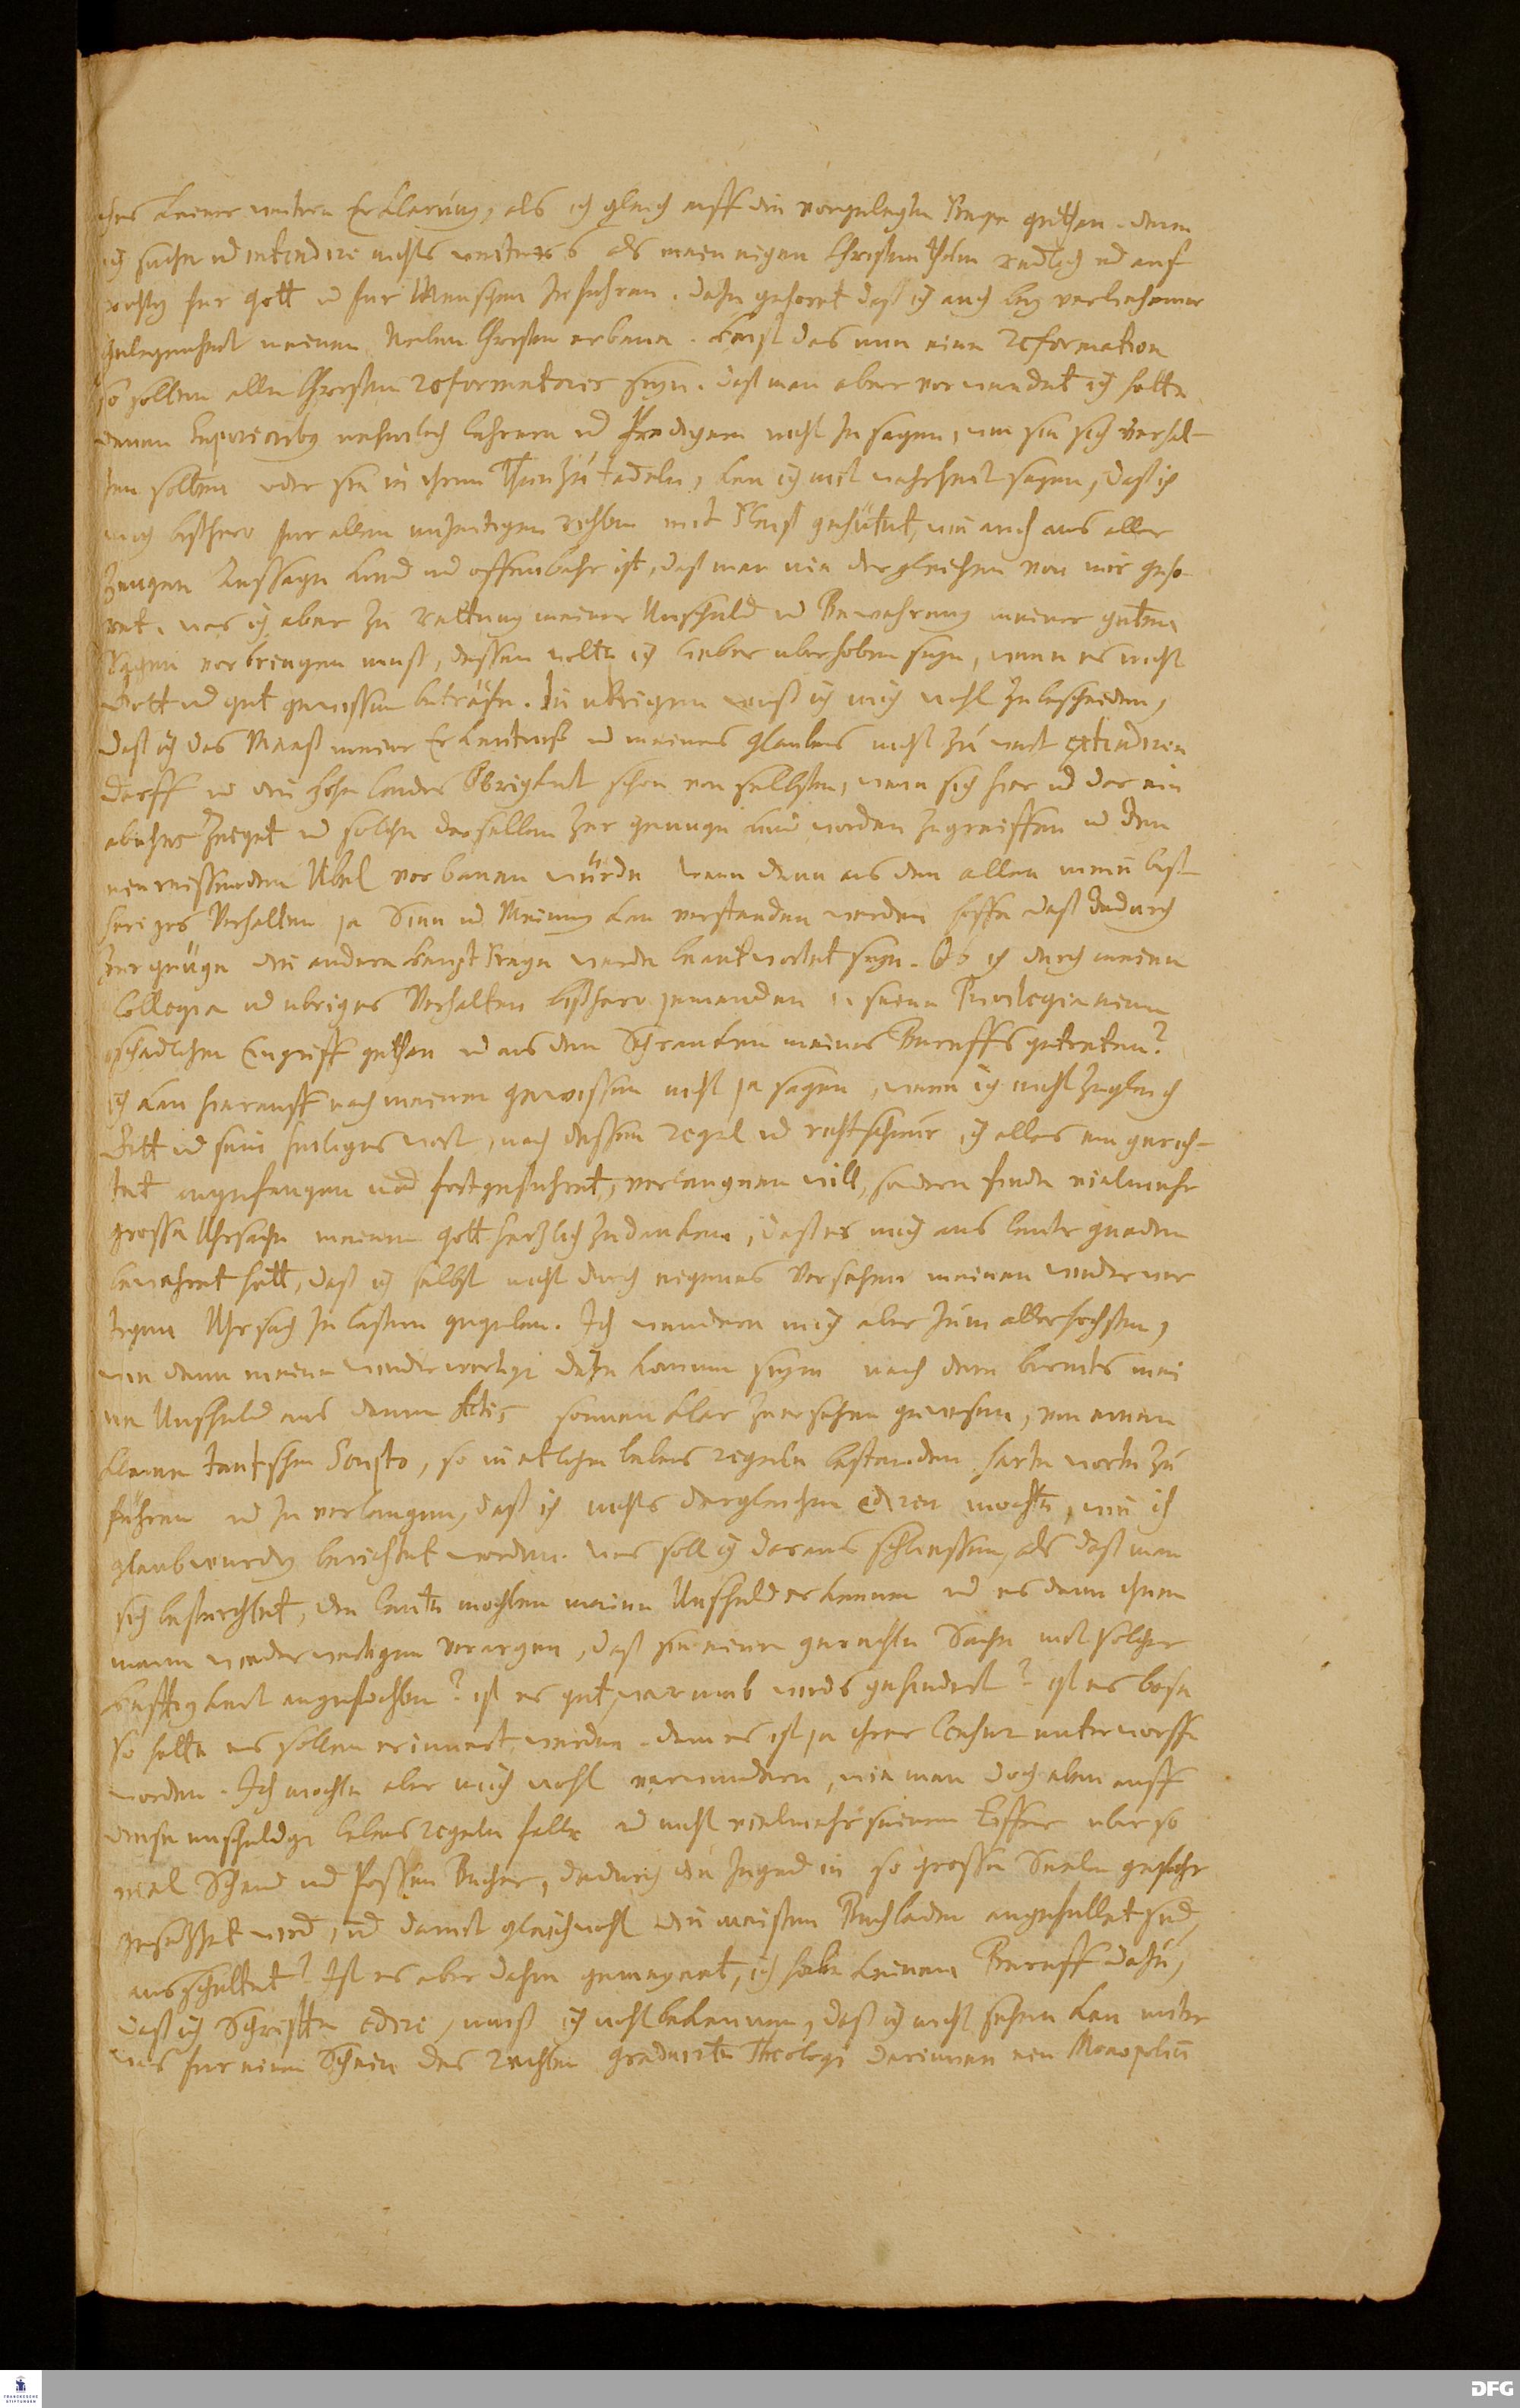 keiner weitern Erklärung, als ich gleich auff die vorgelegte Frage gethan. denn
ich suche ud intendire nichts weiters als mein eigen Christenthum redlich ud auf
richtig fur Gott ud fur Menschen zu fuhren. dazu gehoret daß ich auch bey verliehener
Gelegenheit meinen Neben Christen erbaue. heist das nun eine Reformation
so sollten alle Christen Reformatores seyn. daß man aber vorwendet ich hatte
denen Superiorib9 nehmlich Lehrern ud Predigern nicht zu sagen, wie sie sich verhal-
ten solten oder sie in ihrem Thun zu tadeln, kan ich mit wahrheit sagen, daß ich
mich bißhero fur allem unzeitigen richten mit Fleiß gehütet, wie auch aus aller
Zeugen Aussage kund ud offenbahr ist, daß man nie dergleichen von mir geho-
ret. was ich aber zu Rettung meiner Unschuld ud Bewahrung meiner guten
Sachen vorbringen muß, dessen wolte ich lieber uberhoben seyn, wenn es nicht
Gott ud gut gewissen beträfe. Im ubrigen weiß ich mich wohl zu bescheiden,
daß ich das Maaß meiner Erkentniß ud meines Glaubens nicht zu weit extendiren
darff ud die hohe Landes Obrigkeit schon von selbsten, wenn sich hier ud dar ein
abusus zeiget ud solche desselben zur genuge kund worden zugreiffen ud dem
einreissenden Ubel vorbauen würde. Wenn denn aus dem allen mein biß-
heriges Verhalten ja Sinn ud Meinung kan verstanden werden hoffe daß dadurch
zur genüge die andere Haupt Frage werde beantwortet seyn. Ob ich durch meine
Collegia ud ubriges Verhalten bißhero jemanden in seine Privilegia einen
schadlichen Eingriff gethan ud aus den Schrancken meines Beruffs getreten?
ich kan hierauff nach meinem gewissen nicht ja sagen, wenn ich nicht zugleich
Gott ud sein heiliges wort, nach dessen Regel ud richtschnur ich alles eingerich-
tet angefangen und fortgefuhret, verlaugnen will, sondern finde vielmehr
grosse Uhrsache meinem Gott hertzlich zu dancken, daß er mich aus lauter gnaden
bewahret hatt, daß ich selbst nicht durch eigenes Versehen meinen wiederwer
tigen Uhrsach zu lastern gegeben. Ich wundere mich aber zum allerhochsten,
wie denn meine wiederwertige dazu kommen seyn nach dem bereits mei
ne Unschuld aus denen Actis sonnenklar zu ersehen gewesen, von einem
kleinen teutschen Scripto, so in etlichen lebens regeln bestanden harte worte zu
führen ud zu verlangen, daß ich nichts dergleichen ediren mochte, wie ich
glaubwurdig berichtet worden. was soll ich daraus schliessen, als daß man
sich befurchtet, die leute mochten meine Unschuld erkennen ud es denn ihnen
meinen wiederwertigen verargen, daß sie eine gerechte Sache mit solcher
hefftigkeit angefochten? ist es gut, warumb wirds gehindert? ist es böse
so hatte es sollen erinnert werden. denn es ist ja ihrer Censur unterworffen
worden. Ich mochte aber mich wohl verwundern, wie man doch eben auff
diese unschuldige lebens regeln falle ud nicht vielmehr seinen Eiffer uber so
viel Schand ud Possen Bucher, dadurch die Jugend in so grosse Seelen gefahr
gesetzet wird, ud damit gleichwohl die meisten Buchladen angefullet sind,
ausschüttet? Ist es aber dahin gemeynet, ich habe keinen Beruff dazu,
daß ich Schrifften edire, muß ich wohl bekennen, daß ich nicht sehen kan unter
was fur einem Schein des Rechten graduirte Theologi darinnen ein Monopoliū